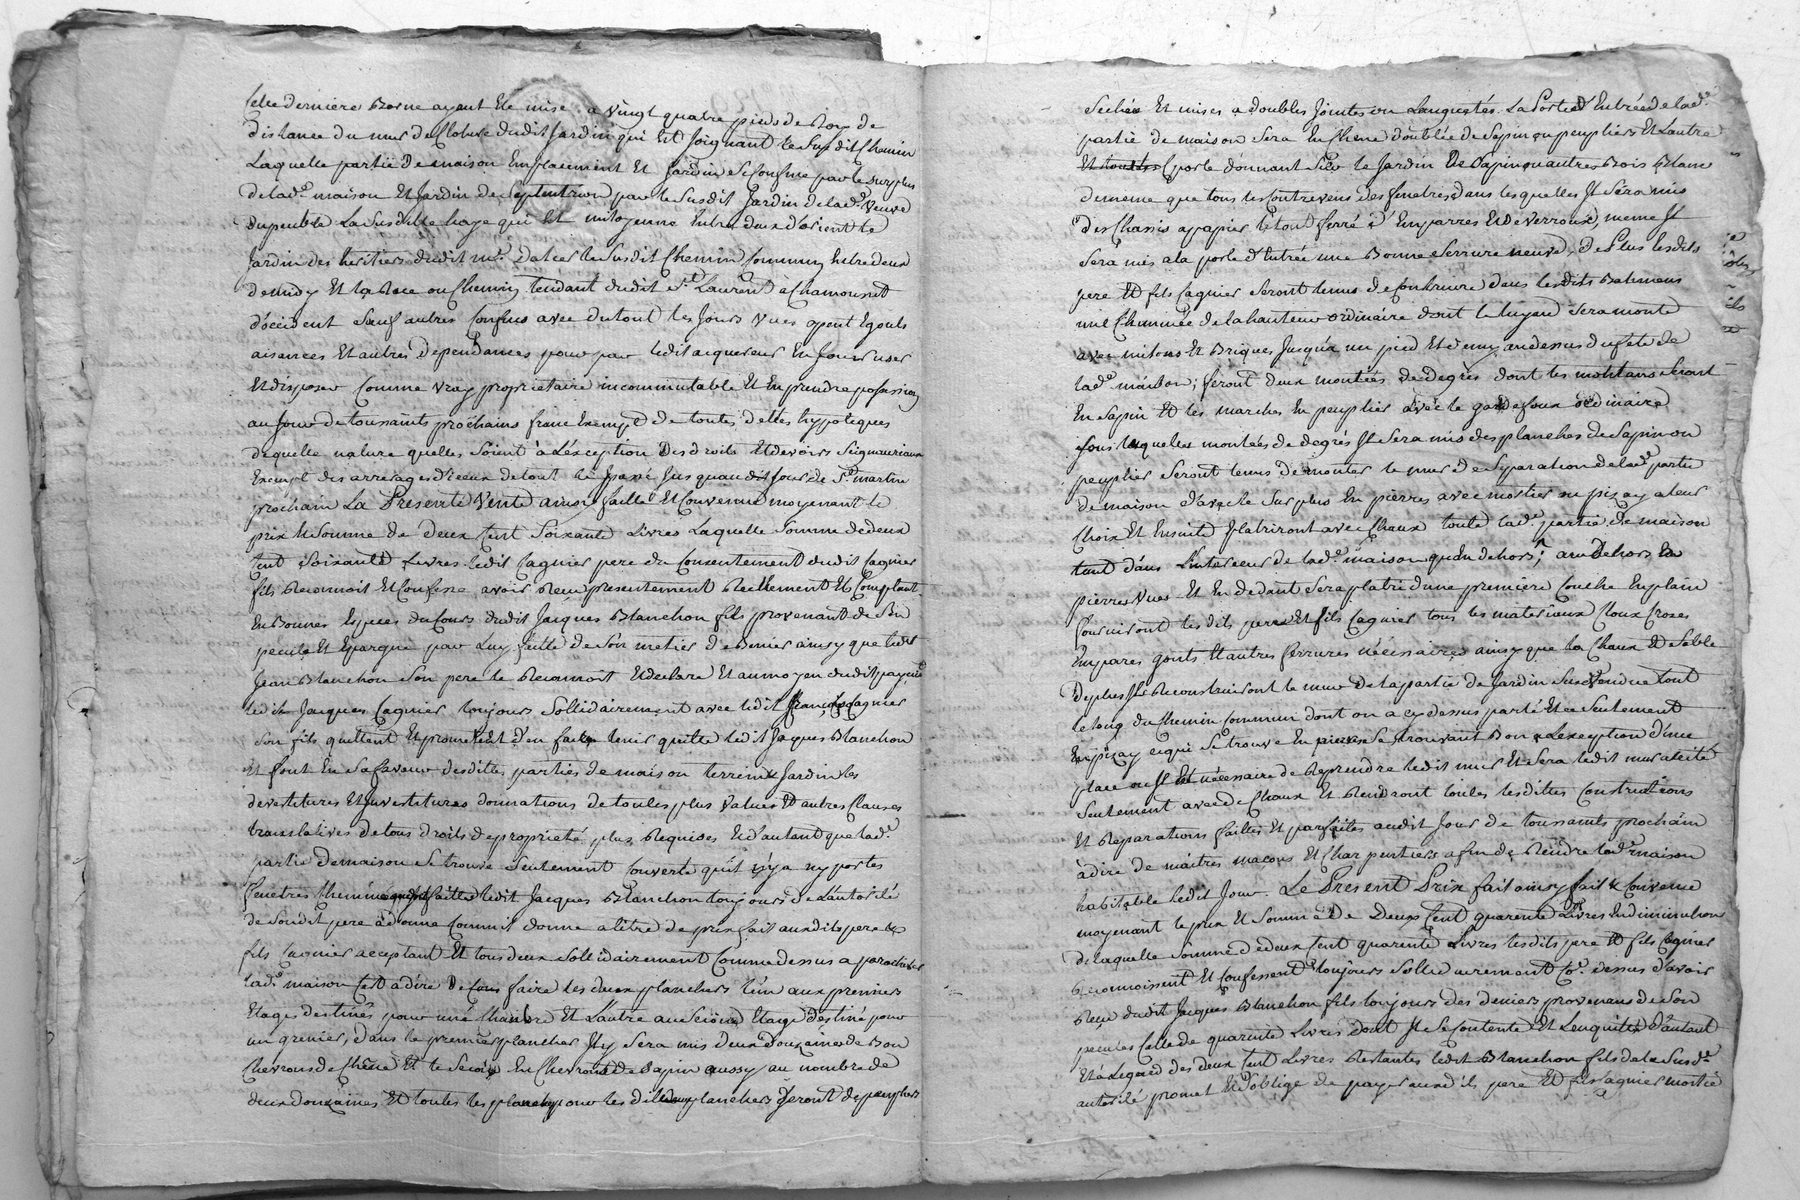 cette derniere Borne ayant Ete mise a vingt quatre pieds de Roy de
distance du mur de Cloture dudit Jardin qui Est Joignant le Susdit Chemin
Laquelle partie de maison Emplacement Et Jardin Se Confine par le Surplus
de lad.e maison Et Jardin de Septentrion par le Susdit Jardin de lad.e veuve
La Susditte haye qui Est mitoyenne Entre deux d'orient le
Jardin des heritiers dudit m.e le Susdit Chemin Commun Entre deux
de midy Et la place ou Chemin tendant dudit S.t Laurent à Chamousset
d'occident Sauf autres Confins avec du tout les Jours vues Egouts
aisances Et autres Dependances pour par ledit acquereur En Jouir user
Et disposer Comme vray proprietaire incommutable Et En prendre possession
au Jour de toussaints prochains franc Exempt de toutes dettes hypoteques
de quelle nature quelles Soient à L'exception Des droits Et devoirs Seigneuriaux
Exempt des arrerages d'iceux de tout le passé Jusquaudit Jour de S.t martin
prochain La Presente Vente ainsy faitte Et Convenue moyenant le
prix Et Somme de deux Cent Soixante Livres Laquelle Somme de deux
Cent Soixante Livres ledit Cagnier pere du Consentement dudit Cagnier
fils Reconnoit Et Confesse avoir Reçu presentement Reellement Et Comptant
En Bonnes Especes du Cours dudit Jacques Blanchon fils provenant de Son
pecule Et Epargne par Luy faitte de Son metier ainsy que ledit
Jean Blanchon Son pere le Reconnoit Et declare Et au moyen dudit payem.t
ledit Jacques Cagnier toujours Sollidairement avec ledit François Cagnier
Son fils quittent Et promettent d'en faire tenir quitte ledit Jacques Blanchon
Et font En Sa faveur desdittes parties de maison terrein Et Jardin les
devestitures Et Investitures donnations de toutes plus values Et autres Clauses
translatives de tous droits de proprieté plus Requises Et d'autant que lad.e
partie de maison Se trouve Seulement Couverte qu'il n'y a ny portes
fenetres Cheminée ledit Jacques Blanchon toujours de L'autorité
de Sondit pere a donné Comme il donne a titre de prix fait auxdits pere Et
fils Cagnier acceptant Et tous deux Sollidairement Comme dessus a parachever
lad.e maison C'est a dire De faire les deux planchers L'un aux premiers
Etages destinés pour une Chambre Et L'autre au Second Etage destiné pour
un grenier, dans le premier plancher Il y Sera mis deux douzaines de Bon
Chevrons de Chêne Et le Second En Chevrons de Sapin aussy au nombre de
deux douzaines Et toutes les planches pour lesdits deux planchers Seront de peupliers
Sechées Et mises a doubles Jointes ou Languetés. La Porte d'Entrée de lad.e
partie de maison Sera En Chene doublée de Sapin ou peupliers Et L'autre
porte donnant Sur le Jardin De Sapin ou autres Bois Blanc
de meme que tous les Contrevens des fenetres dans lesquelles Il Sera mis
des Chassis a papier le tout ferré d'Emparres Et de verroux, meme Il
Sera mis a la porte d'Entrée une Bonne Serrure neuve, De Plus lesdits
pere Et fils Cagnier Seront tenus de Construire dans lesdits Batimens
une Cheminée de la hauteur ordinaire dont le tuyau Sera monté
avec mitons Et Briques Jusqu'a un pied Et demy au dessus du fete de
lad.e maison; feront deux montées de degres dont les montans Seront
En Sapin Et les marches En peuplier avec le gardefoux ordinaire
Sous lesquelles montées de degres Il Sera mis des planches de Sapin ou
peuplier Seront tenus de monter le mur de Separation de lad.e partie
de maison d'avec le Surplus En pierres avec mortier ou pizay a leur
Choix Et Ensuite platriront avec Chaux toute lad.e partie de maison
tant dans L'interieur de lad.e maison qu'en dehors; au dehors En
pierres vues Et En dedant Sera platré d'une premiere Couche En plain
fourniront lesdits pere Et fils Cagnier tous les materiaux
Empares gonts Et autres ferrures nécessaires ainsy que la Chaux Et Sable
De plus Ils Reconstruiront le mur De la partie de Jardin Susvendue tout
le long du Chemin Commun dont on a cy dessus parlé Et ce Seulement
En pizay ce qui Se trouve En pierres Se trouvant Bon a L'exception d'une
place ou Il Est nécessaire de Reprendre ledit mur Et Sera ledit mur
Seulement avec de Chaux Et Rendront toutes lesdittes Constructions
Et Reparations faittes Et parfaites audit Jour de toussaints prochain
à dire de maitres maçons Et Charpentiers afin de Rendre lad.e maison
habitable ledit Jour. Le Present Prix fait ainsy fait Et Convenu
moyenant le prix Et Somme De Deux Cent quarente Livres En diminution
de laquelle Somme de deux Cent quarente Livres lesdits pere Et fils Cagnier
Reconnoissent Et Confessent toujours Sollidairement Co.e dessus d'avoir
Reçu dudit Jacques Blanchon fils toujours des deniers provenans de Son
pecule Celle de quarente Livres dont Il Se Contente Et L'enquitte D'autant
Et a Legard des deux Cent Livres Restantes ledit Blanchon fils de la Susd.e
autorité promet Et S'oblige de payer auxdits pere Et fils Cagnier moitié